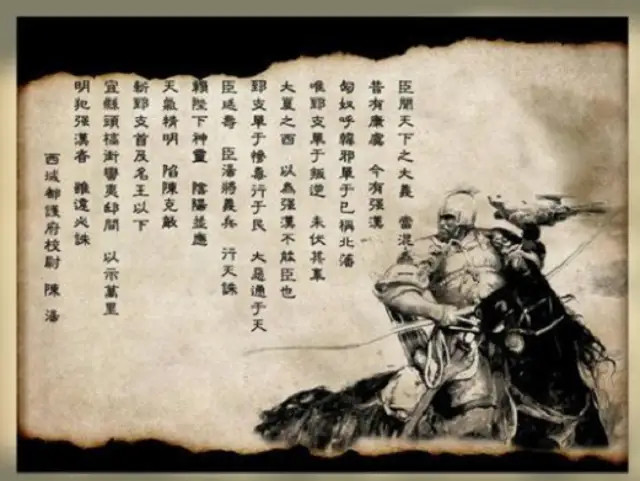 臣聞天下之大義 當混為
昔有康虞 今有强漢
匈奴呼韓邪單于已稱北藩
唯郅支單于叛逆 未伏其辜
大夏之西 以為强漢不能臣也
郅支單于慘毒行于民 大惡通于天
臣延壽 臣湯將義兵 行天誅
賴陛下神靈 陰陽並應
天氣精明 陷陳克敵
斬郅支首及名王以下
宜縣頭槁街蠻夷邸間 以示萬里
明犯强漢者 雖遠必誅
西域都護府校尉 陳湯